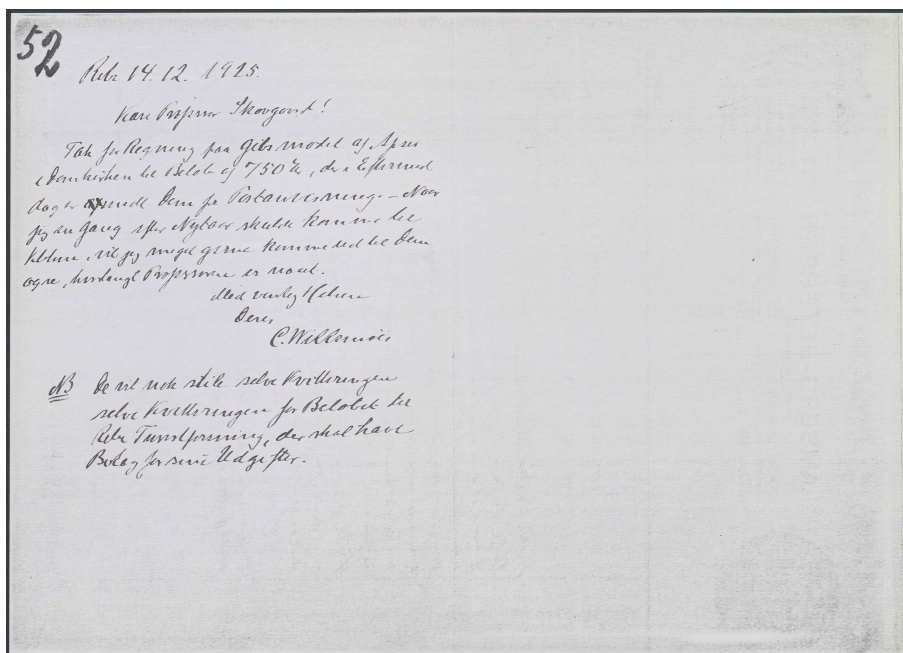 52
Ribe 14.12. 1925.
Kære Professor Skovgaard!
Tak for Regning paa Gibsmodel af Apsis
i Domkirken til Beløb af 750 Kr, der i Eftermid
dag er sendt Dem pr Postanvisning. – Naar
jeg en Gang efter Nytaar skulde komme til
Kbhvn, vil jeg meget gerne komme ud til Dem
og se, hvorlangt Professoren er naaet.
Med venlig Hilsen
Deres
C. Willemoës
NB De vil nok stile selve Kvitteringen
selve Kvitteringen for Beløbet til
Ribe Turistforening, der skal have
Bilag for sine Udgifter.